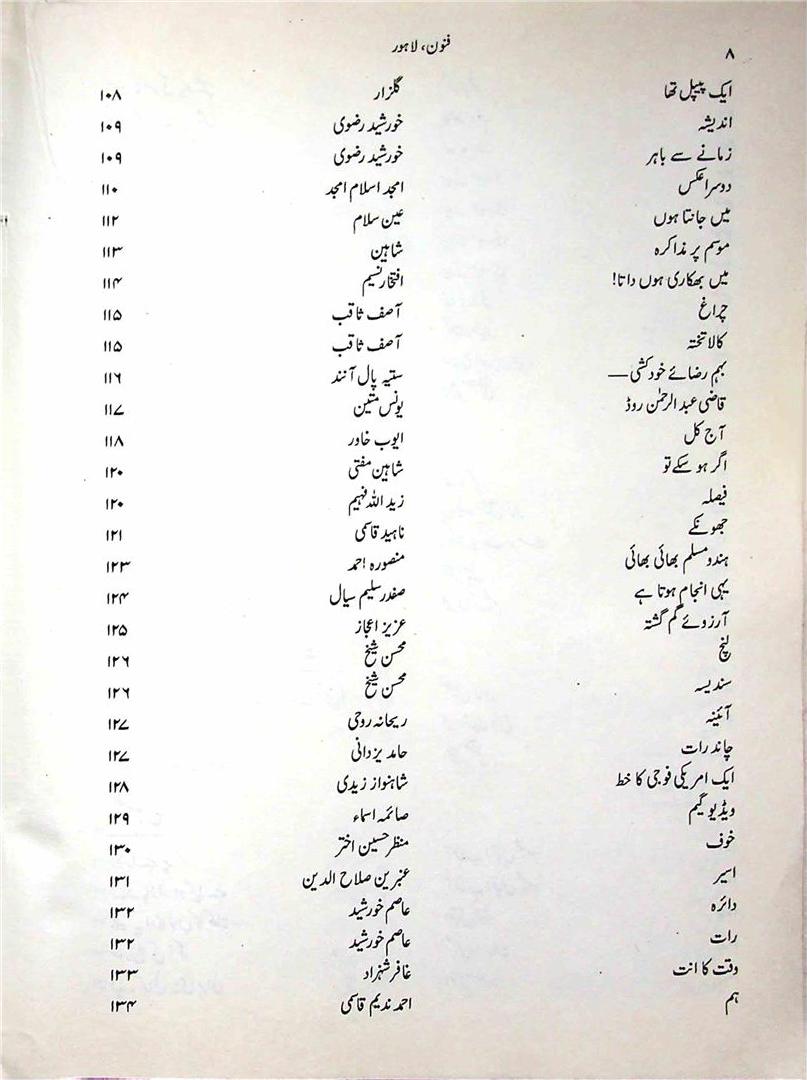 ۸ فنون، لاہور
ایک پیپل تھا گلزار ۱۰۸
اندیشہ خورشید رضوی ۱۰۹
زمانے سے باہر خورشید رضوی ۱۰۹
دوسرا عکس امجد اسلام امجد ۱۱۰
میں جانتا ہوں عین سلام ۱۱۲
موسم پر مذاکرہ شاہین ۱۱۳
میں بھکاری ہوں داتا! افتخار نسیم ۱۱۴
چراغ آصف ثاقب ۱۱۵
کالا تختہ آصف ثاقب ۱۱۵
بہم رضائے خودکشی— ستیہ پال آنند ۱۱۶
قاضی عبد الرحمٰن روڈ یونس متین ۱۱۷
آج کل ایوب خاور ۱۱۸
اگر ہو سکے تو شاہین مفتی ۱۲۰
فیصلہ زید اللہ فہیم ۱۲۰
جھونکے ناہید قاسمی ۱۲۱
ہندو مسلم بھائی بھائی منصورہ احمد ۱۲۳
یہی انجام ہوتا ہے صفدر سلیم سیال ۱۲۴
آرزوئے گم گشتہ عزیز اعجاز ۱۲۵
لنچ محسن شیخ ۱۲۶
سندیسہ محسن شیخ ۱۲۶
آئینہ ریحانہ روحی ۱۲۷
چاند رات حامد یزدانی ۱۲۷
ایک امریکی فوجی کا خط شاہنواز زیدی ۱۲۸
ویڈیو گیم صائمہ اسماء ۱۲۹
خوف منظر حسین اختر ۱۳۰
اسیر عنبرین صلاح الدین ۱۳۱
دائرہ عاصم خورشید ۱۳۲
رات عاصم خورشید ۱۳۲
وقت کا انت غافر شہزاد ۱۳۳
ہم احمد ندیم قاسمی ۱۳۴